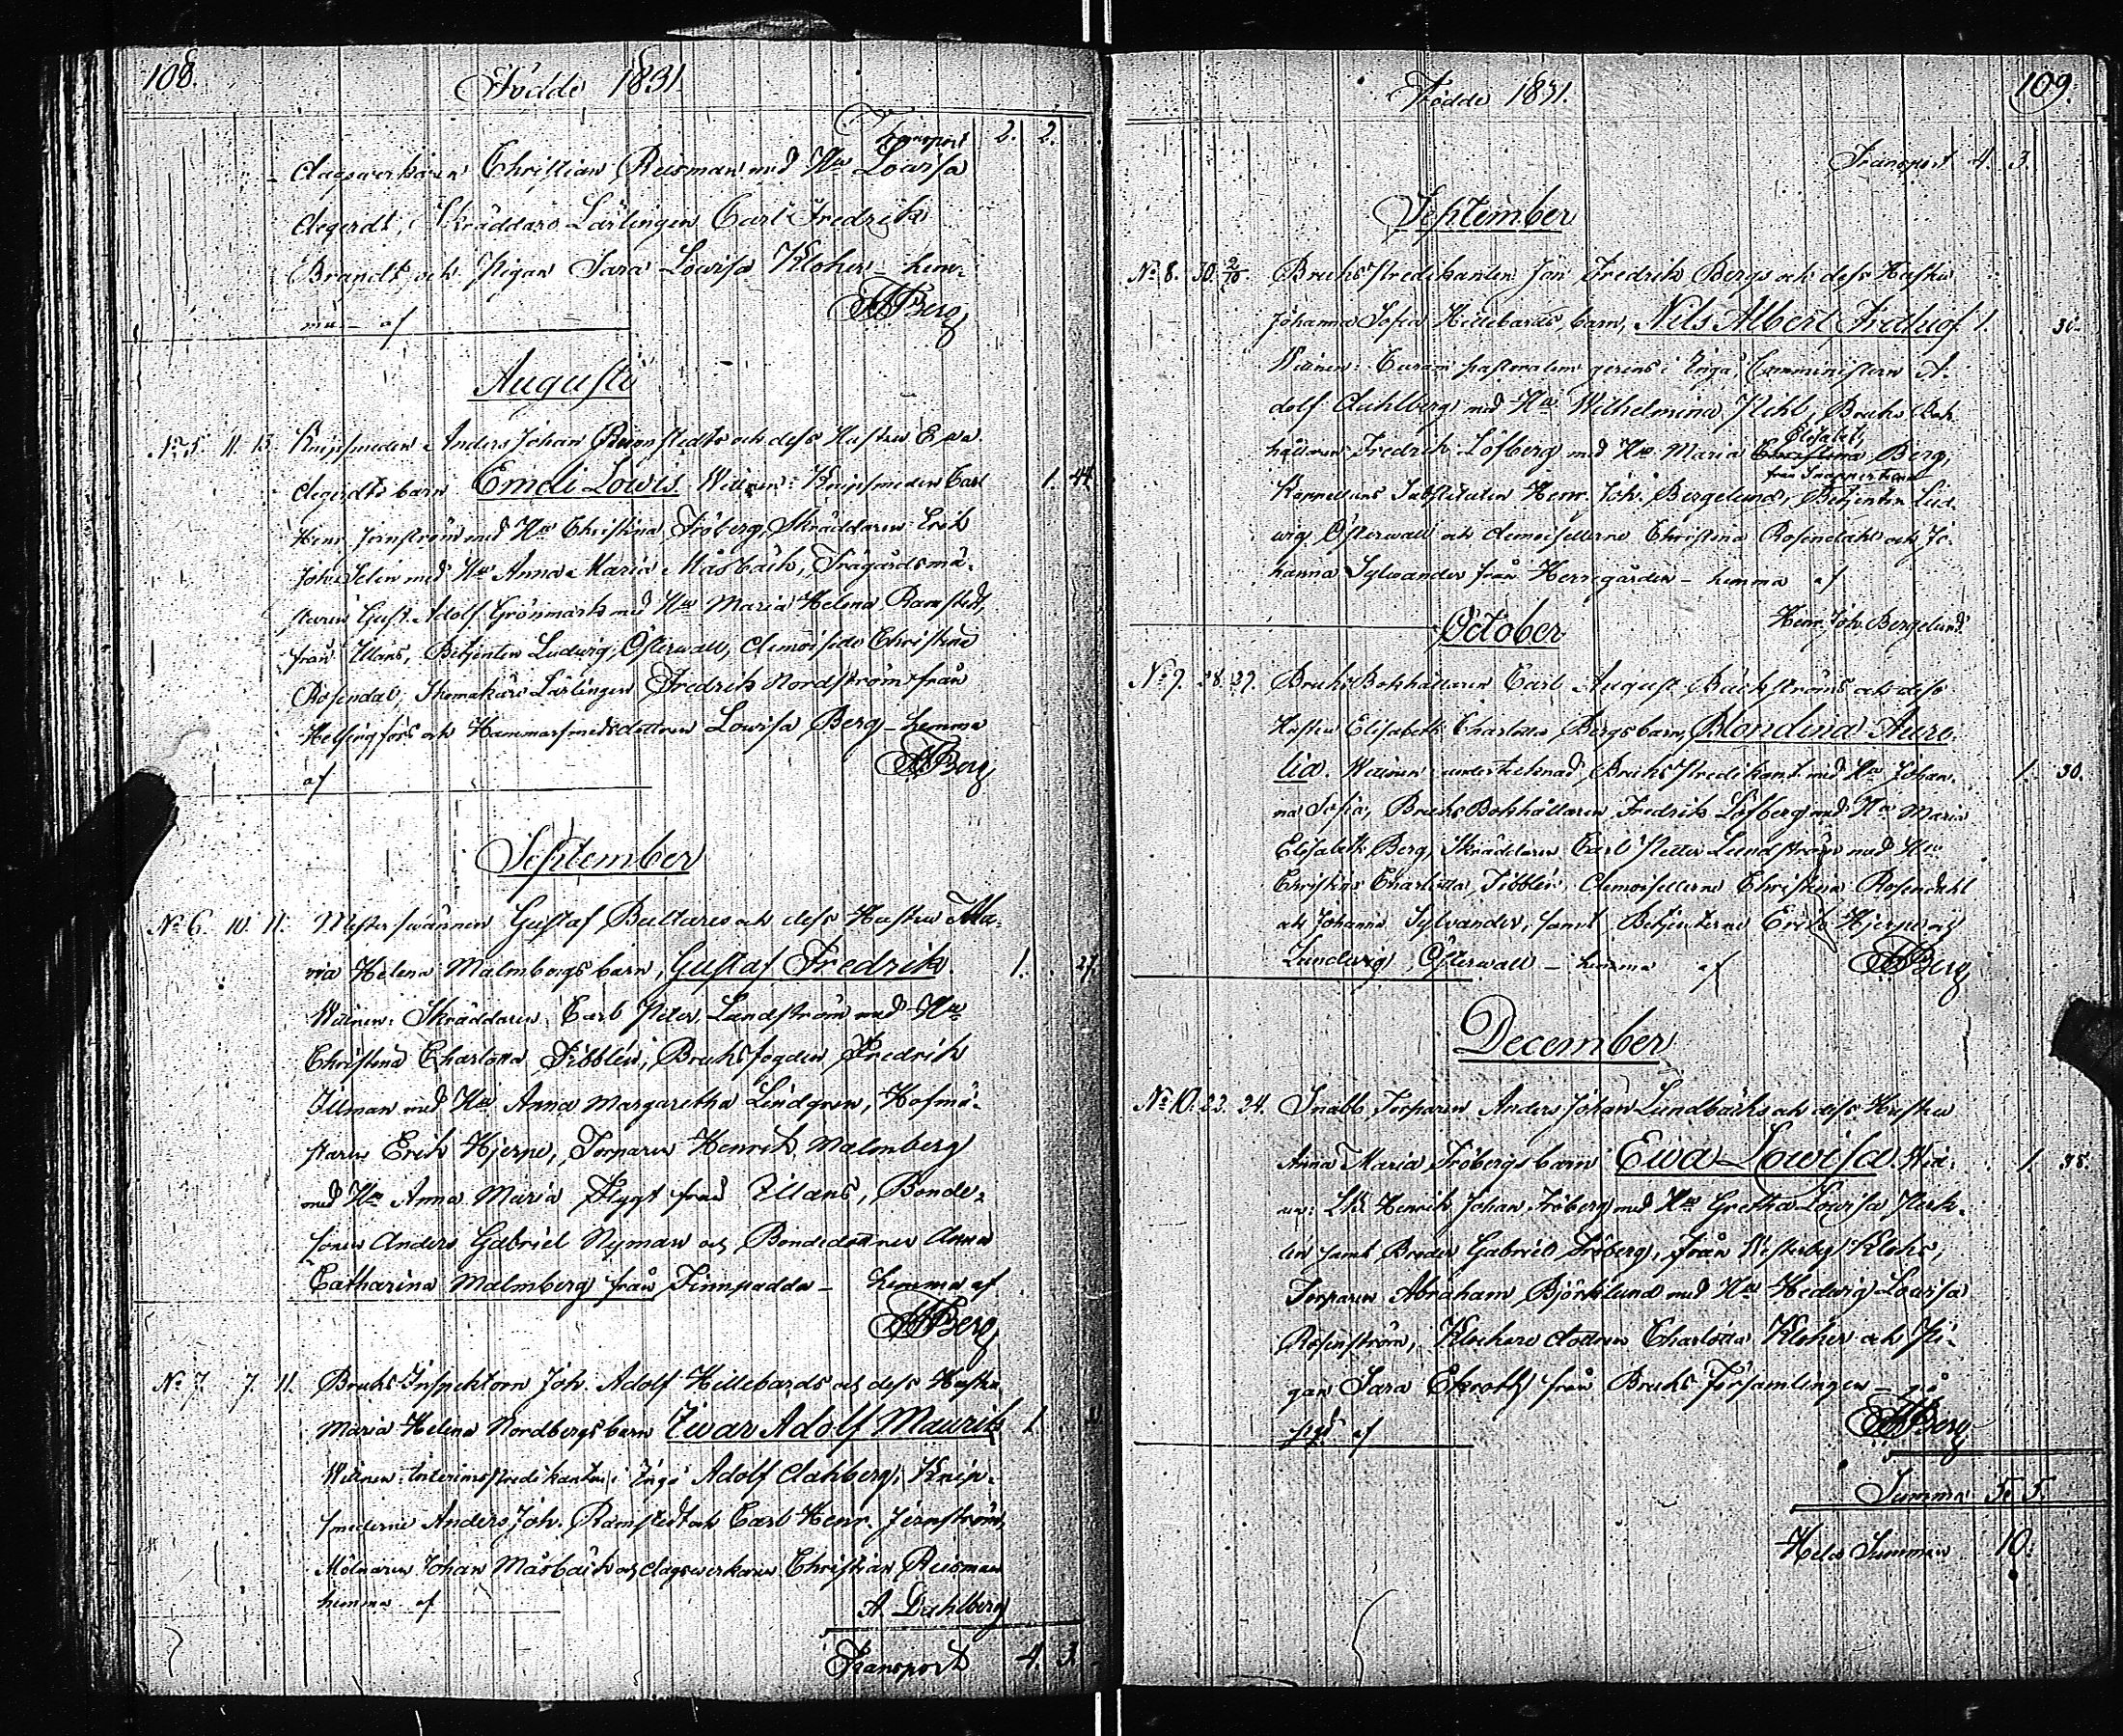 108.
Födde 1831
Transport 2. 2.
Christian Reisman med H:u Lovisa
Skräddare Lärlingen Carl Fredrik
Brandt, och Pigan Sara Lovisa Kloher – hem-
ma – af
FBerg
Augusti
No 5. 11. 13. Knipsmeden Anders Johan Ramstedts och dess Hustru Eva
barn Emeli Lovis. Witnen: Knipsmeden Carl 1. 44.
Henr. Jernström med H:u Christina Fröberg, Skräddaren Erik
Joh. Selin med H:u Anna Maria Måsbäck, Trägårdsmä-
staren Gust. Adolf Grönmark med H:u Maria Helena Ramstedt,
från Betjenten Ludvig Österwall, Christina
Rosendal, Skomakare Lärlingen Fredrik Nordström från
Helsingfors och Hammarsmedsdottren Lovisa Berg – hemma
af
FBerg
September
No 6. 10. 11. Gustaf och dess Hustru Ma-
ria Helena Malmbergs barn, Gustaf Fredrik. 1. 27.
Witnen: Skräddaren Carl Peter Lundström med H:u
Christina Charlotta Tibblin, Bruksfogden Fredrik
med H:u Anna Margaretha Lindgren, Hofmä-
staren Erik Hjerpe, Torparen Henrik Malmberg
med H:u Anna Maria Flygt från Bonde-
sonen Anders Gabriel Nyman och Bondedottren Anna
Catharina Malmberg från Finnpadda – hemma af
FBerg
No 7. 7. 11. Bruks Inspektorn Joh. Adolf Hillebards och dess Hustru
Maria Helena Nordbergs barn Ivar Adolf Maurits 1.
Witnen: Interimspredikanten i Ingå Adolf Dahlberg, Knip-
smederne Anders Joh. Ramstedt och Carl Henr. Jernström,
Mölnaren Johan Måsbäck och dagsverkaren Christian Reisman
hemma af
A. Dahlberg
Transport 4. 3.
Födde 1831.
109.
Transport 4. 3.
September
No 8. 30. 2/10. Bruks Predikanten Jon Fredrik Bergs och dess Hustru
Johanna Sofia Hillebards, barn, Nils Albert 1. 30.
Witnen: Curam pastoralem gerens i Ingå, Comministern A-
dolf Dahlberg med H:u Wilhelmina Pihl, Bruks Bok-
Elisabet,
hållaren Fredrik Löfberg med H:u Maria Christina Berg,
från Snappertuna
Kappellans Substituten Henr. Joh. Bergelund, Betjenten Lud-
wig Österwall och demoisellerne Christina Rosendahl och Jo-
hanna Sylvander från Herregården – hemma af
Henr. Joh. Bergelund
October
No 9. 28. 29. Bruks Bokhållaren Carl August Bäckströms och dess
Hustru Elisabeth Charlotta Bergs barn, Blondina Aure-
lia. Witnen: undertecknad Bruks Predikant med H:u Johan- 1. 30.
na Sofia, Bruks Bokhållaren Fredrik Löfberg med H:u Maria
Elisabeth Berg, Skräddaren Carl Petter Lundström med H:u
Christina Charlotta Tibblin, demoisellerne Christina Rosendahl
och Johanna Sylvander, samt Betjenterne Erik Hjerpe och
Ludwig Österwall – hemma af
FBerg
December
No 10. 23. 24. Snabb Torparen Anders Johan Lundbäcks och dess Hustru
Anna Maria Fröbergs barn Ewa Lowisa. Wit- 1. 38.
Henrik Johan Fröberg med H:u Gretha Lovisa
samt Brodren Gabriel Fröberg, från
Torparen Abraham Björklund med H:u Hedwig Lovisa
Rosenström, Klockare dottren Charlotta Kloher och Pi-
gan Sara Ekroth från Bruks Församlingen –
af
FBerg
Summa 5. 5.
Hela Summan 10.